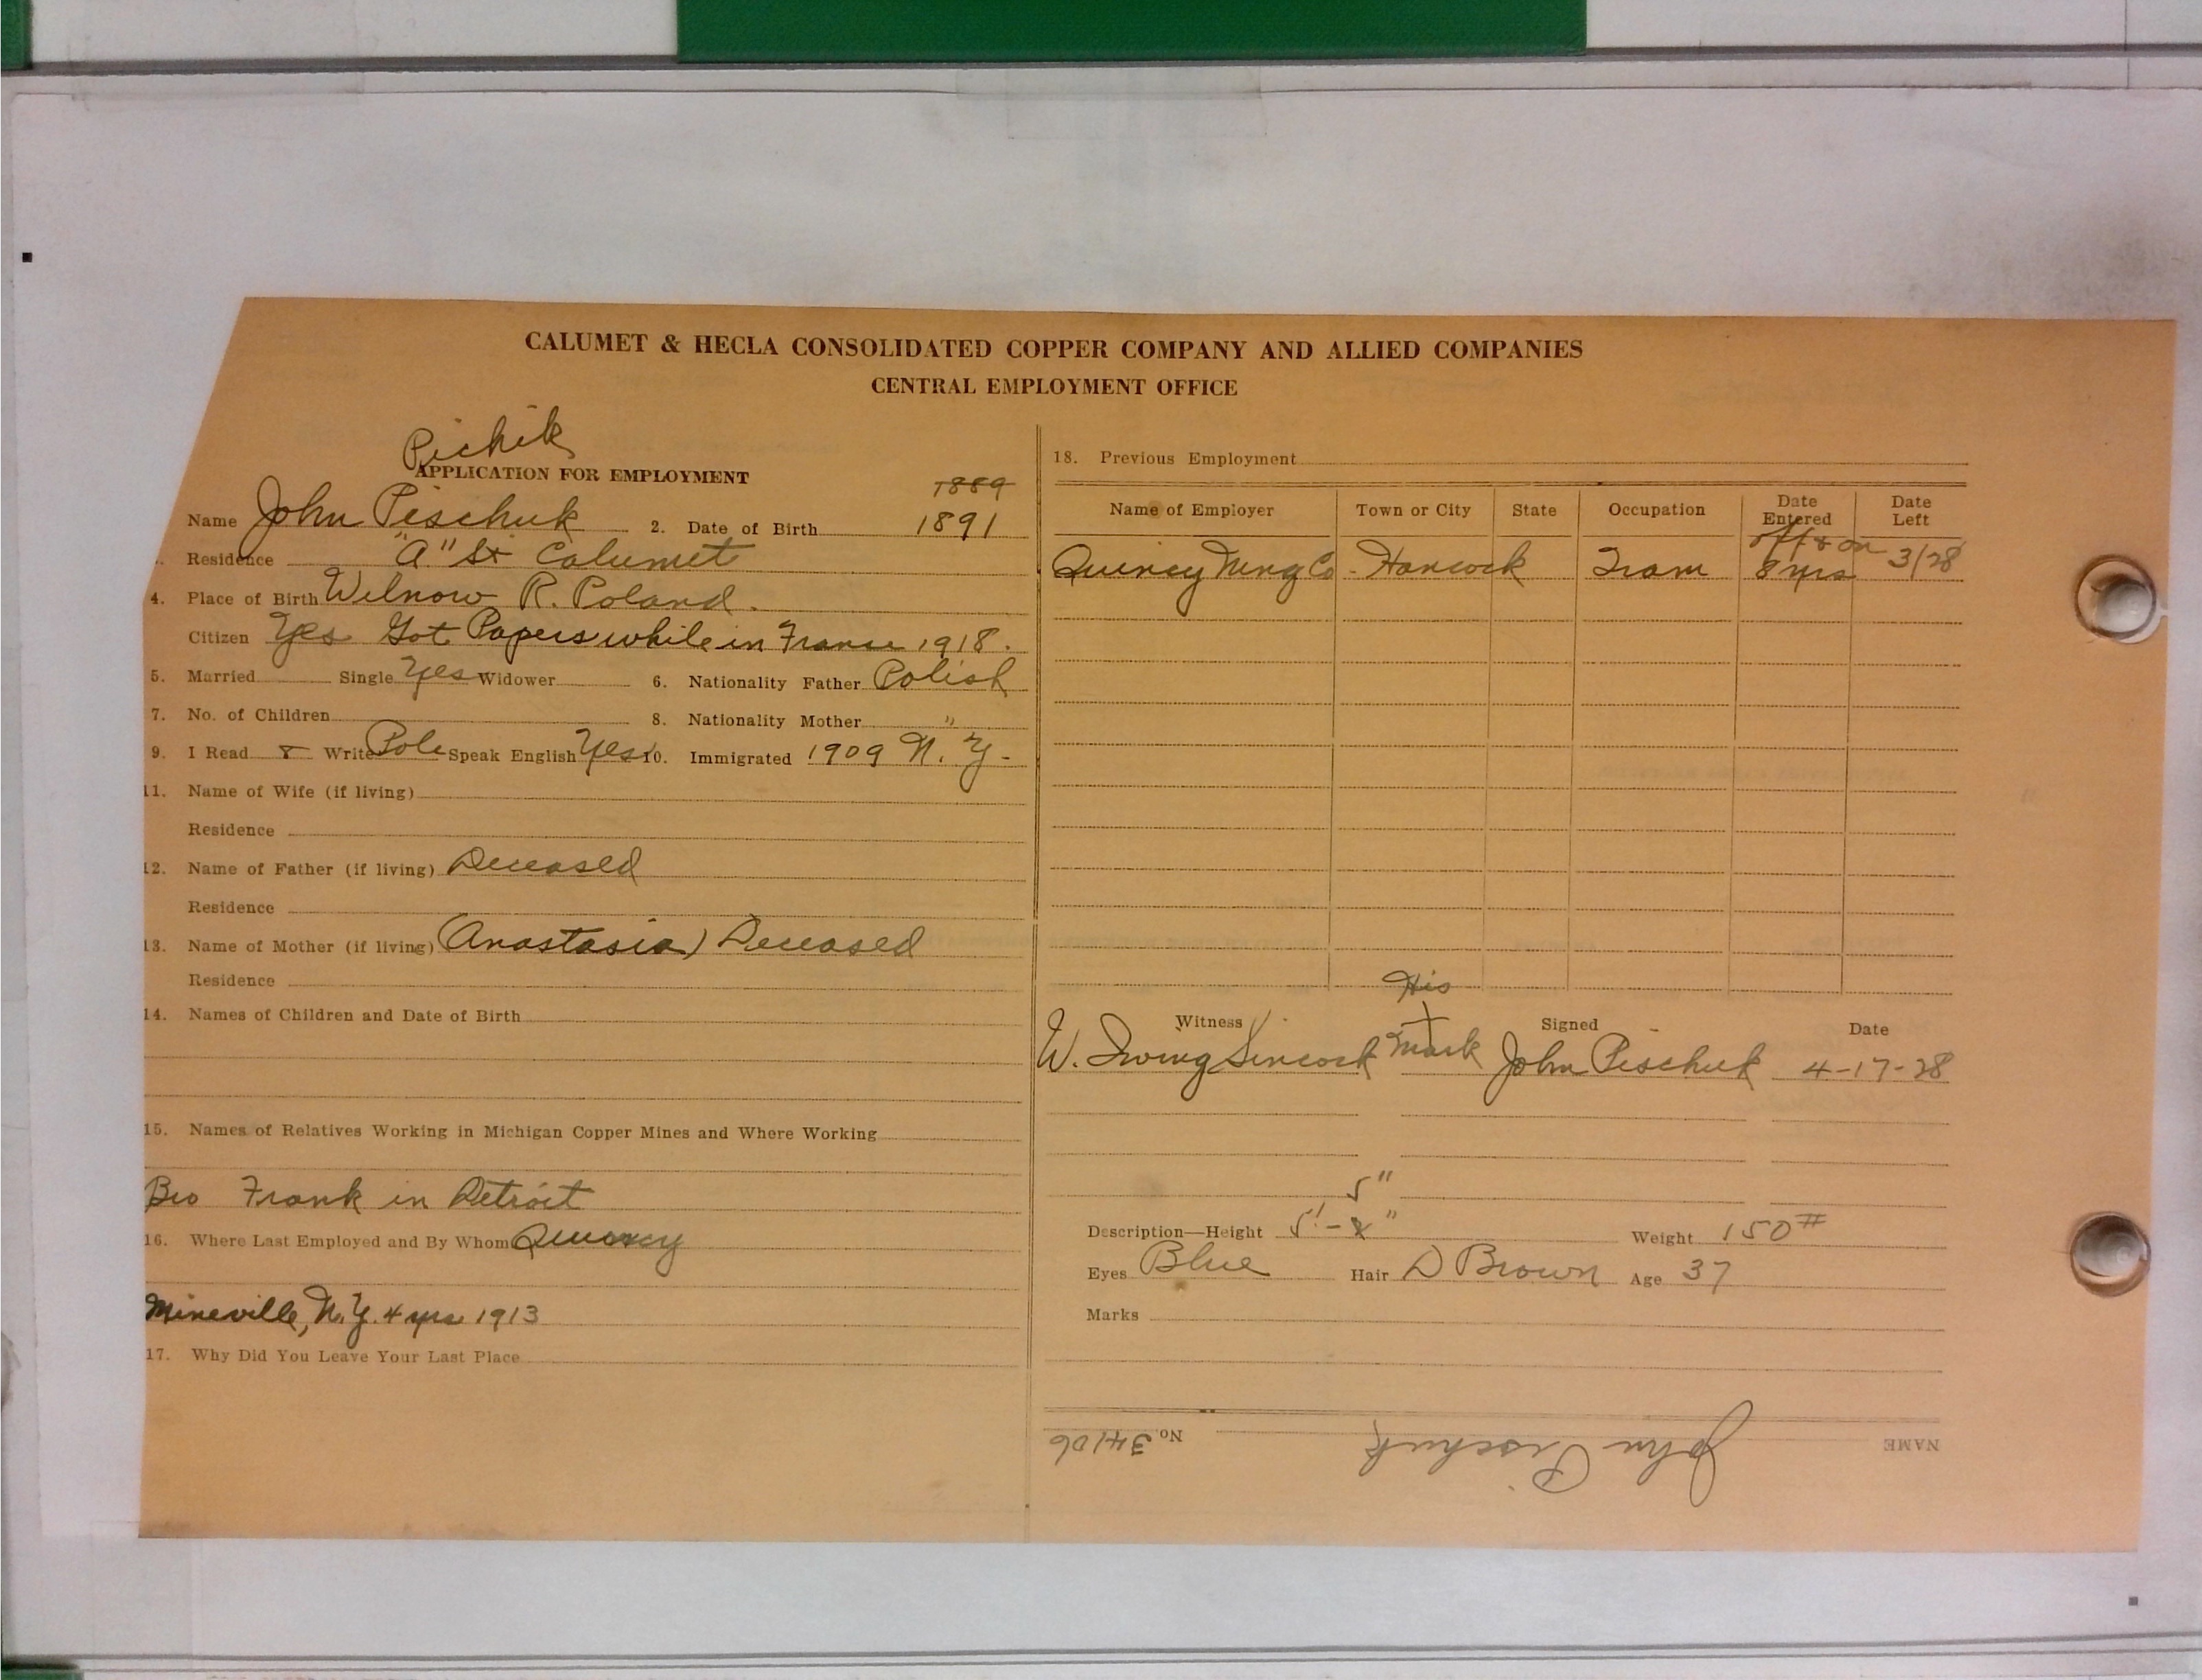 CALUMET & HECLA CONSOLIDATED COPPER COMPANY AND ALLIED COMPANIES
CENTRAL EMPLOYMENT OFFICE
Pichik
APPLICATION FOR EMPLOYMENT
1889
Name John Pischuk 2. Date of Birth 1891
Residence "A" St Calumet
4. Place of Birth Wilnow R. Poland.
Citizen Yes Got Papers while in France 1918.
5. Married Single Yes Widower 6. Nationality Father Polish
7. No. of Children 8. Nationality Mother "
9. I Read & Write Pole Speak English Yes 10. Immigrated 1909 N. Y-
11. Name of Wife (if living)
Residence
12. Name of Father (if living) Deceased
Residence
13. Name of Mother (if living) (Anastasia) Deceased
Residence
14. Names of Children and Date of Birth
15. Names of Relatives Working in Michigan Copper Mines and Where Working
Bro Frank in Detroit
16. Where Last Employed and By Whom Quincy
Mineville, N.Y. 4 yrs 1913
17. Why Did You Leave Your Last Place
18. Previous Employment
Name of Employer Town or City State Occupation Date Entered Date Left
off & on
Quincy Mng Co - Hancock Tram 8 yrs 3/28
His
Witness Signed Date
W. Irving Sincock Mark John Pischuk 4-17-28
5"
Description—Height 5'-8" Weight 150#
Eyes Blue Hair D Brown Age 37
Marks
NAME John Pischuk No 34106